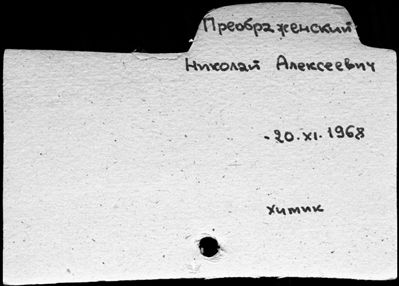 Преображенский
Николай Алексеевич
- 20.XI.1968
химик